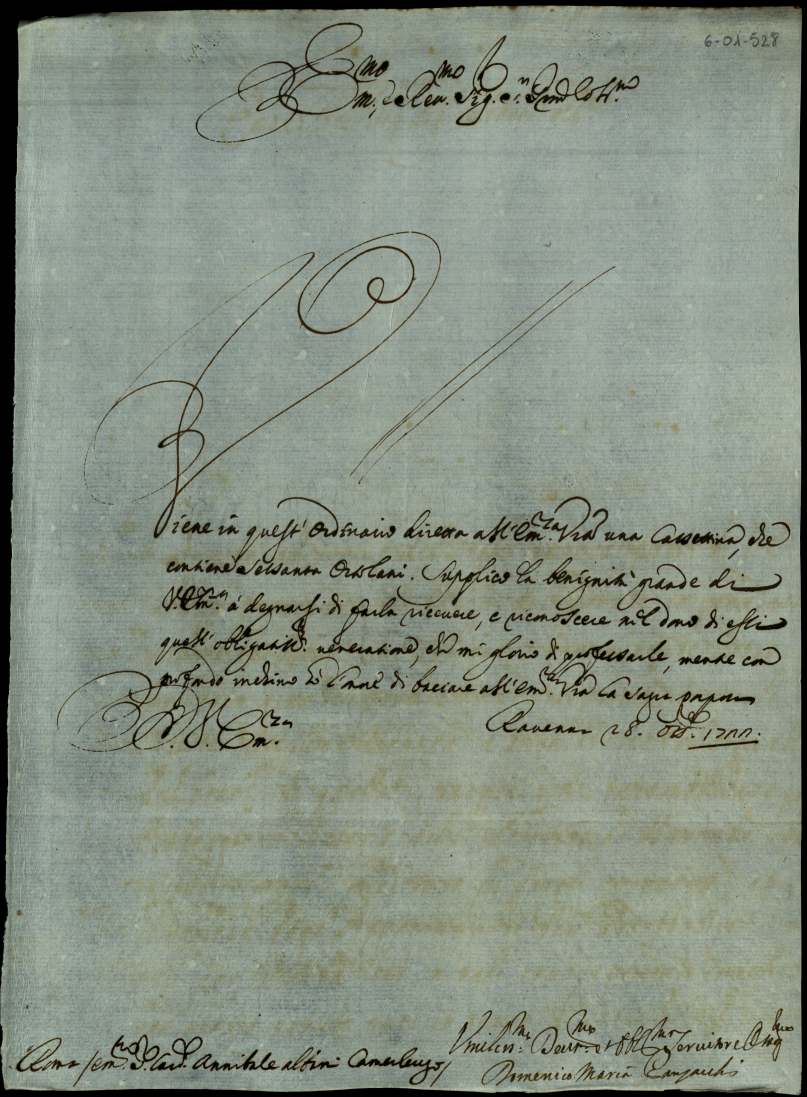 6-01-528
Em.mo e Rev.mo Sig.r
Viene in quest' Ordinario diretta all' Em.za V.ra una Cassettina, che
contiene sessanta Ortolani. Supplico la benignità grande di
V. Em.za à degnarsi di farla ricevere, e riconoscere nel dono di essi
quest' obligatiss.a veneratione, che mi glorio di professarle, mentre con
profondo inchino hò l'onore di baciare all' Em.za V.ra la Sagra porpora
D. V. Em.za
Ravenna 28. Ott.e 1722.
Umiliss.mo Devot.mo et Obl.mo Servitore
Roma / Em.mo S. Card. Annibale Albini Camerlengo /
Domenico Maria